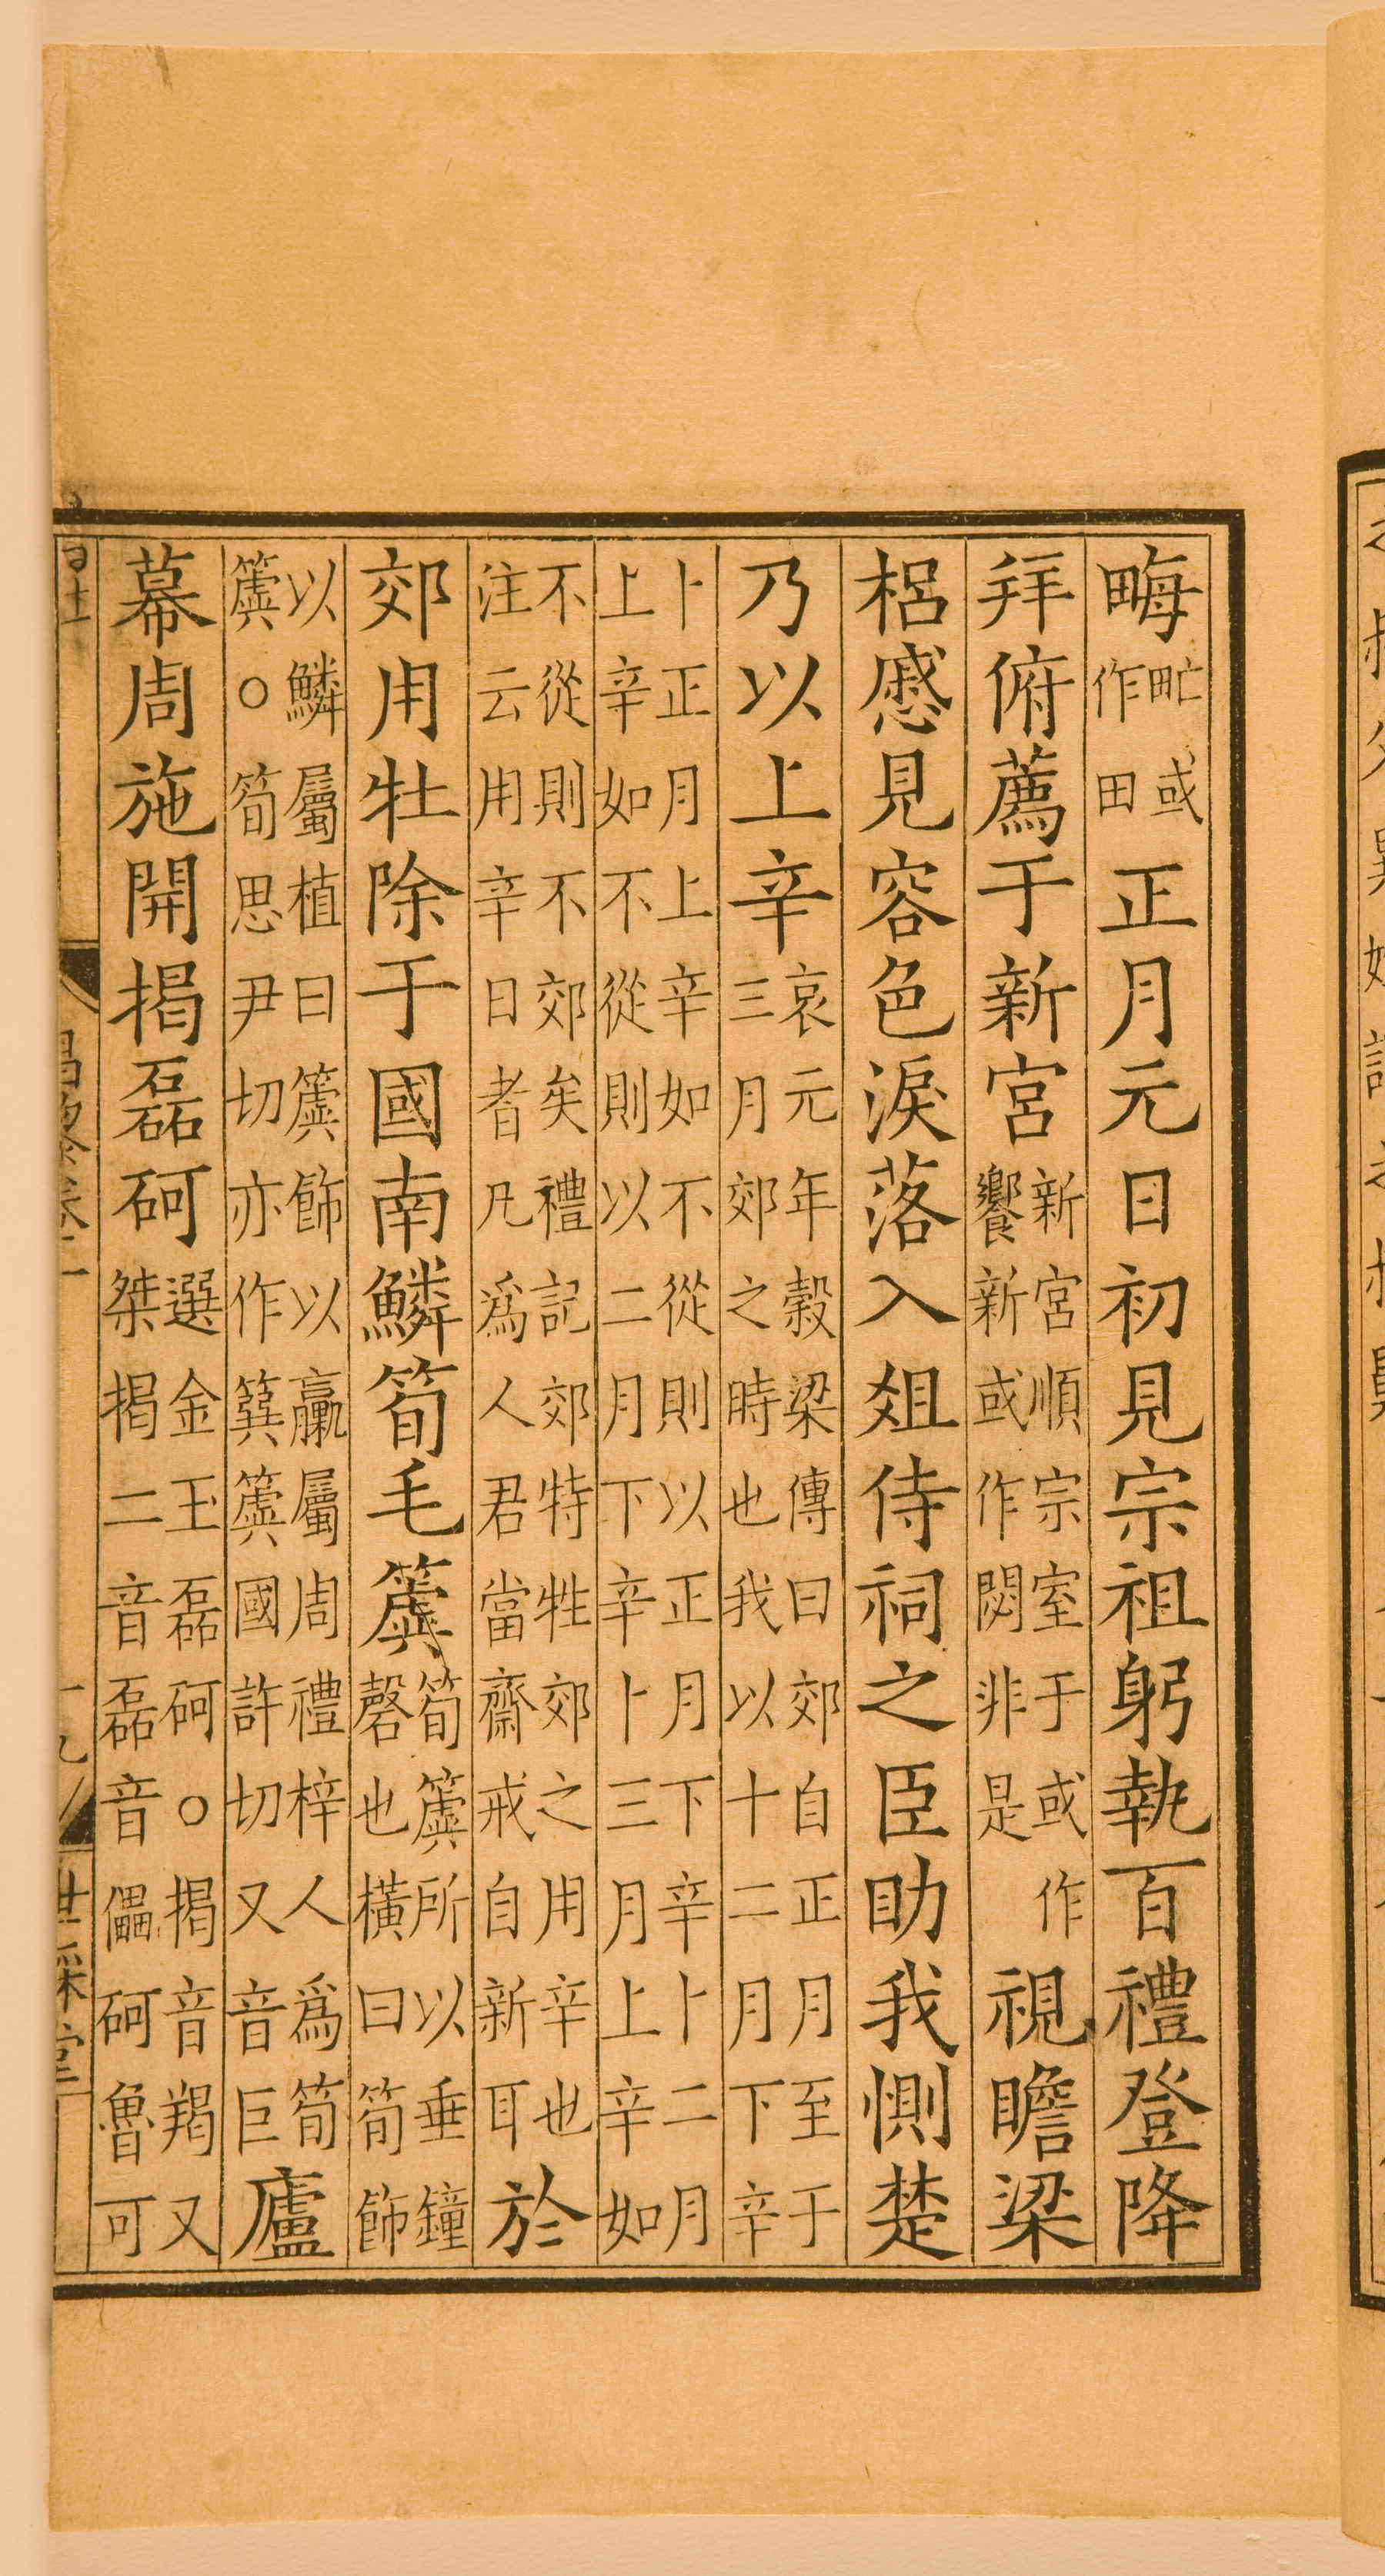 畮甿或作田正月元日初見宗祖躬執百禮登降
拜俯薦于新宮新宮順宗室于或作饗新或作閟非是視瞻梁
梠慼見容色淚落入俎侍祠之臣助我惻楚
乃以上辛哀元年榖梁傳曰郊自正月至于三月郊之時也我以十二月下辛
卜正月上辛如不從則以正月下辛卜二月上辛如不從則以二月下辛卜三月上辛如
不從則不郊矣禮記郊特牲郊之用辛也注云用辛日者凡爲人君當齋戒自新耳於
郊用牡除于國南鱗筍毛簴筍簴所以垂鐘磬也橫曰筍飾
以鱗屬植曰簴飾以臝屬周禮梓人爲筍簴○筍思尹切亦作簨簴國許切又音巨廬
幕周施開揭磊砢選金玉磊砢○揭音羯又桀揭二音磊音儡砢魯可
世綵堂